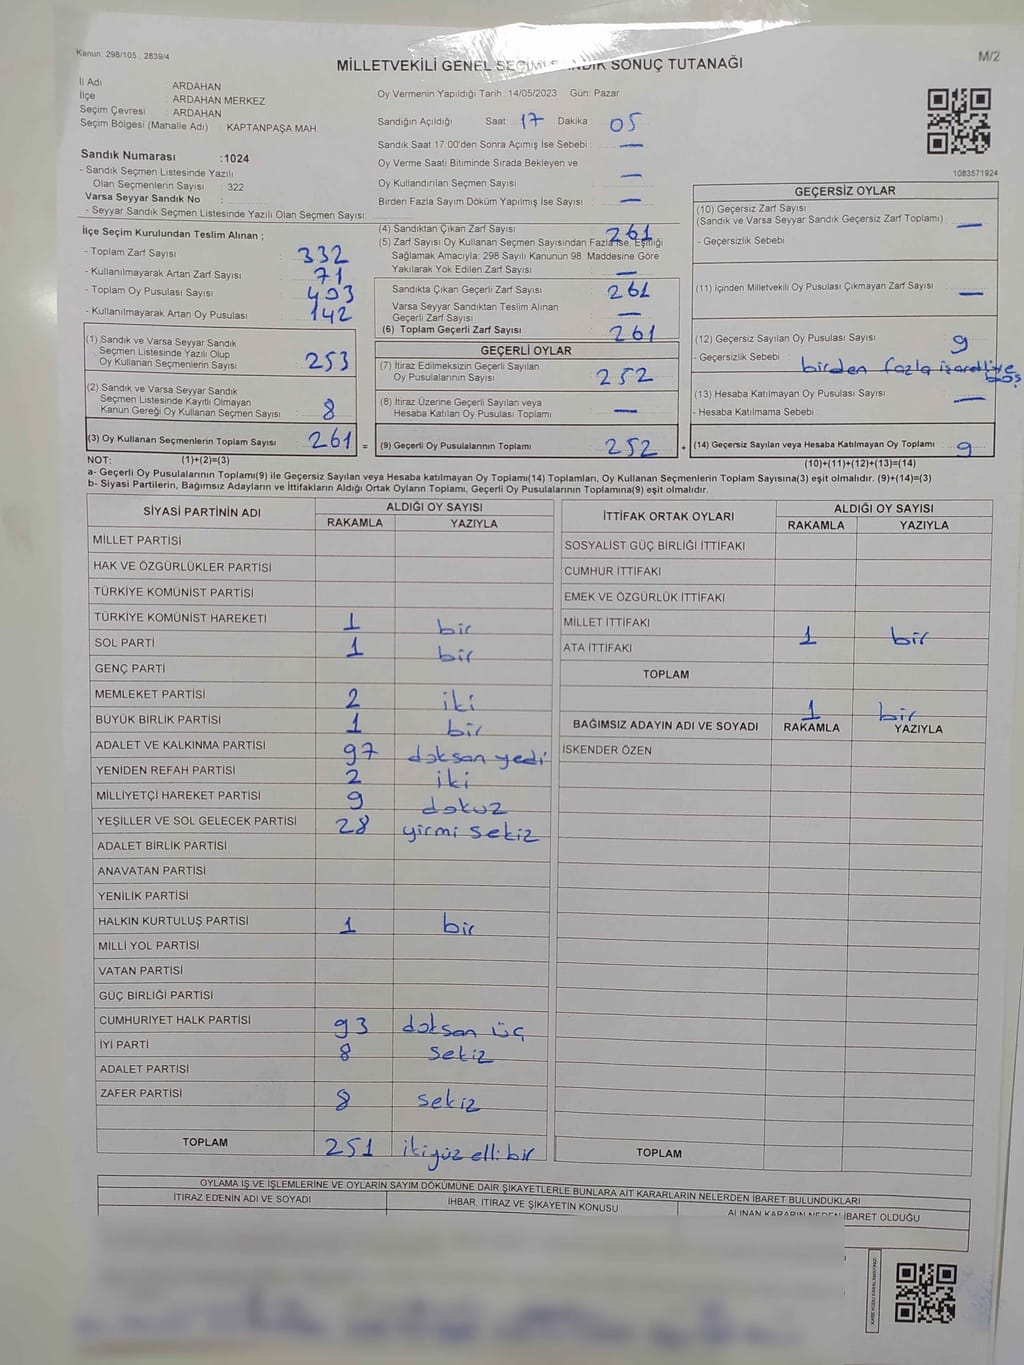 Kanun: 298/105, 2839/4
M/2
MİLLETVEKİLİ GENEL SEÇİMİ SANDIK SONUÇ TUTANAĞI
İl Adı ARDAHAN
İlçe : ARDAHAN MERKEZ
Seçim Çevresi : ARDAHAN
Seçim Bölgesi (Mahalle Adı) : KAPTANPAŞA MAH.
Sandık Numarası :1024
- Sandık Seçmen Listesinde Yazılı
Olan Seçmenlerin Sayısı : 322
Varsa Seyyar Sandık No :
- Seyyar Sandık Seçmen Listesinde Yazılı Olan Seçmen Sayısı:
Oy Vermenin Yapıldığı Tarih :14/05/2023 Gün: Pazar
Sandığın Açıldığı Saat 17 Dakika 05
Sandık Saat 17:00'den Sonra Açımış İse Sebebi : —
Oy Verme Saati Bitiminde Sırada Bekleyen ve
Oy Kullandırılan Seçmen Sayısı : —
Birden Fazla Sayım Döküm Yapılmış İse Sayısı : —
1083571924
İlçe Seçim Kurulundan Teslim Alınan ;
- Toplam Zarf Sayısı : 332
- Kullanılmayarak Artan Zarf Sayısı : 71
- Toplam Oy Pusulası Sayısı : 403
- Kullanılmayarak Artan Oy Pusulası : 142
(1) Sandık ve Varsa Seyyar Sandık
Seçmen Listesinde Yazılı Olup
Oy Kullanan Seçmenlerin Sayısı : 253
(2) Sandık ve Varsa Seyyar Sandık
Seçmen Listesinde Kayıtlı Olmayan
Kanun Gereği Oy Kullanan Seçmen Sayısı : 8
(3) Oy Kullanan Seçmenlerin Toplam Sayısı : 261 =
(4) Sandıktan Çıkan Zarf Sayısı : 261
(5) Zarf Sayısı Oy Kullanan Seçmen Sayısından Fazla ise, Eşitliği
Sağlamak Amacıyla, 298 Sayılı Kanunun 98. Maddesine Göre
Yakılarak Yok Edilen Zarf Sayısı : —
Sandıkta Çıkan Geçerli Zarf Sayısı : 261
Varsa Seyyar Sandıktan Teslim Alınan
Geçerli Zarf Sayısı : —
(6) Toplam Geçerli Zarf Sayısı : 261
GEÇERLİ OYLAR
(7) İtiraz Edilmeksizin Geçerli Sayılan
Oy Pusulalarının Sayısı : 252
(8) İtiraz Üzerine Geçerli Sayılan veya
Hesaba Katılan Oy Pusulası Toplamı : —
(9) Geçerli Oy Pusulalarının Toplamı : 252 +
GEÇERSİZ OYLAR
(10) Geçersiz Zarf Sayısı
(Sandık ve Varsa Seyyar Sandık Geçersiz Zarf Toplamı) : —
- Geçersizlik Sebebi :
(11) İçinden Milletvekili Oy Pusulası Çıkmayan Zarf Sayısı : —
(12) Geçersiz Sayılan Oy Pusulası Sayısı : 9
- Geçersizlik Sebebi : birden fazla işaretli ve boş
(13) Hesaba Katılmayan Oy Pusulası Sayısı : —
- Hesaba Katılmama Sebebi :
(14) Geçersiz Sayılan veya Hesaba Katılmayan Oy Toplamı : 9
NOT: (1)+(2)=(3) (10)+(11)+(12)+(13)=(14)
a- Geçerli Oy Pusulalarının Toplamı(9) ile Geçersiz Sayılan veya Hesaba katılmayan Oy Toplamı(14) Toplamları, Oy Kullanan Seçmenlerin Toplam Sayısına(3) eşit olmalıdır. (9)+(14)=(3)
b- Siyasi Partilerin, Bağımsız Adayların ve İttifakların Aldığı Ortak Oyların Toplamı, Geçerli Oy Pusulalarının Toplamına(9) eşit olmalıdır.
SİYASİ PARTİNİN ADI ALDIĞI OY SAYISI
RAKAMLA YAZIYLA
MİLLET PARTİSİ
HAK VE ÖZGÜRLÜKLER PARTİSİ
TÜRKİYE KOMÜNİST PARTİSİ
TÜRKİYE KOMÜNİST HAREKETİ 1 bir
SOL PARTİ 1 bir
GENÇ PARTİ
MEMLEKET PARTİSİ 2 iki
BÜYÜK BİRLİK PARTİSİ 1 bir
ADALET VE KALKINMA PARTİSİ 97 doksan yedi
YENİDEN REFAH PARTİSİ 2 iki
MİLLİYETÇİ HAREKET PARTİSİ 9 dokuz
YEŞİLLER VE SOL GELECEK PARTİSİ 28 yirmi sekiz
ADALET BİRLİK PARTİSİ
ANAVATAN PARTİSİ
YENİLİK PARTİSİ
HALKIN KURTULUŞ PARTİSİ 1 bir
MİLLİ YOL PARTİSİ
VATAN PARTİSİ
GÜÇ BİRLİĞİ PARTİSİ
CUMHURİYET HALK PARTİSİ 93 doksan üç
İYİ PARTİ 8 sekiz
ADALET PARTİSİ
ZAFER PARTİSİ 8 sekiz
TOPLAM 251 ikiyüz elli bir
İTTİFAK ORTAK OYLARI ALDIĞI OY SAYISI
RAKAMLA YAZIYLA
SOSYALİST GÜÇ BİRLİĞİ İTTİFAKI
CUMHUR İTTİFAKI
EMEK VE ÖZGÜRLÜK İTTİFAKI
MİLLET İTTİFAKI 1 bir
ATA İTTİFAKI
TOPLAM 1 bir
BAĞIMSIZ ADAYIN ADI VE SOYADI RAKAMLA YAZIYLA
İSKENDER ÖZEN
TOPLAM
OYLAMA İŞ VE İŞLEMLERİNE VE OYLARIN SAYIM DÖKÜMÜNE DAİR ŞİKAYETLERLE BUNLARA AİT KARARLARIN NELERDEN İBARET BULUNDUKLARI
İTİRAZ EDENİN ADI VE SOYADI İHBAR, İTİRAZ VE ŞİKAYETİN KONUSU ALINAN KARARIN NEDEN İBARET OLDUĞU